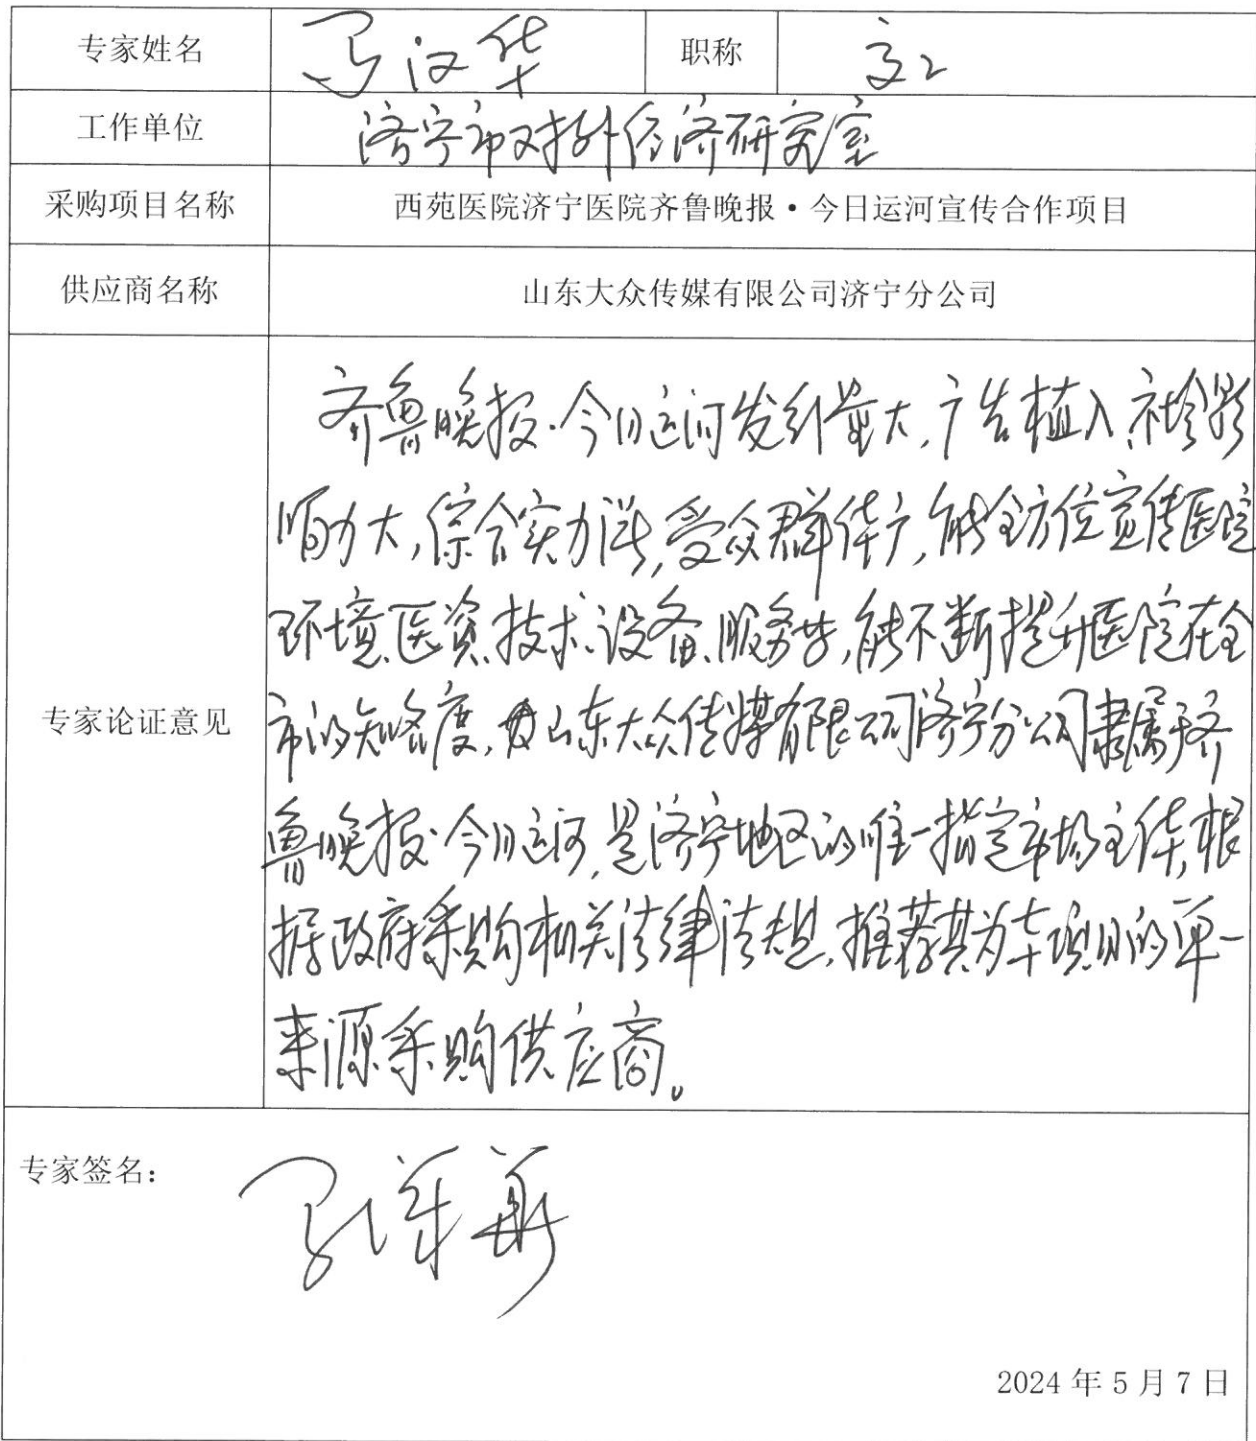 专家姓名 马汉华 职称 高工
工作单位 济宁市对外经济研究室
采购项目名称 西苑医院济宁医院齐鲁晚报·今日运河宣传合作项目
供应商名称 山东大众传媒有限公司济宁分公司
齐鲁晚报·今日运河发行量大,广告植入、社会影
响力大,综合实力强,受众群体广,能全方位宣传医院
环境、医资、技术、设备、服务等,能不断提升医院在全
专家论证意见 市的知名度,山东大众传媒有限公司济宁分公司隶属于齐
鲁晚报·今日运河,是济宁地区的唯一指定市场主体,根
据政府采购相关法律法规,推荐其为本项目的单一
来源采购供应商。
专家签名:
2024年5月7日